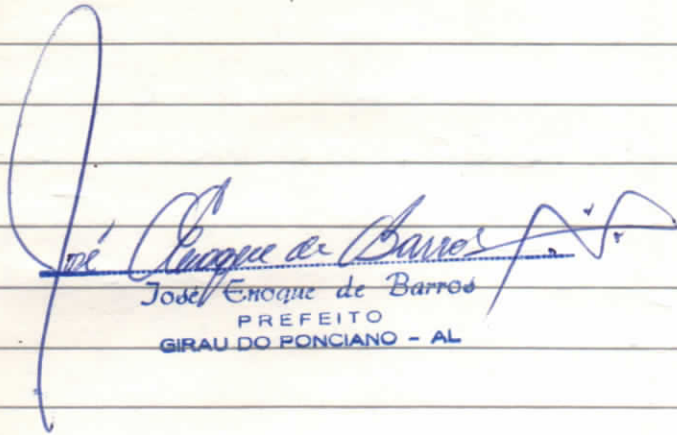 José Enoque de Barros
José Enoque de Barros
PREFEITO
GIRAU DO PONCIANO - AL